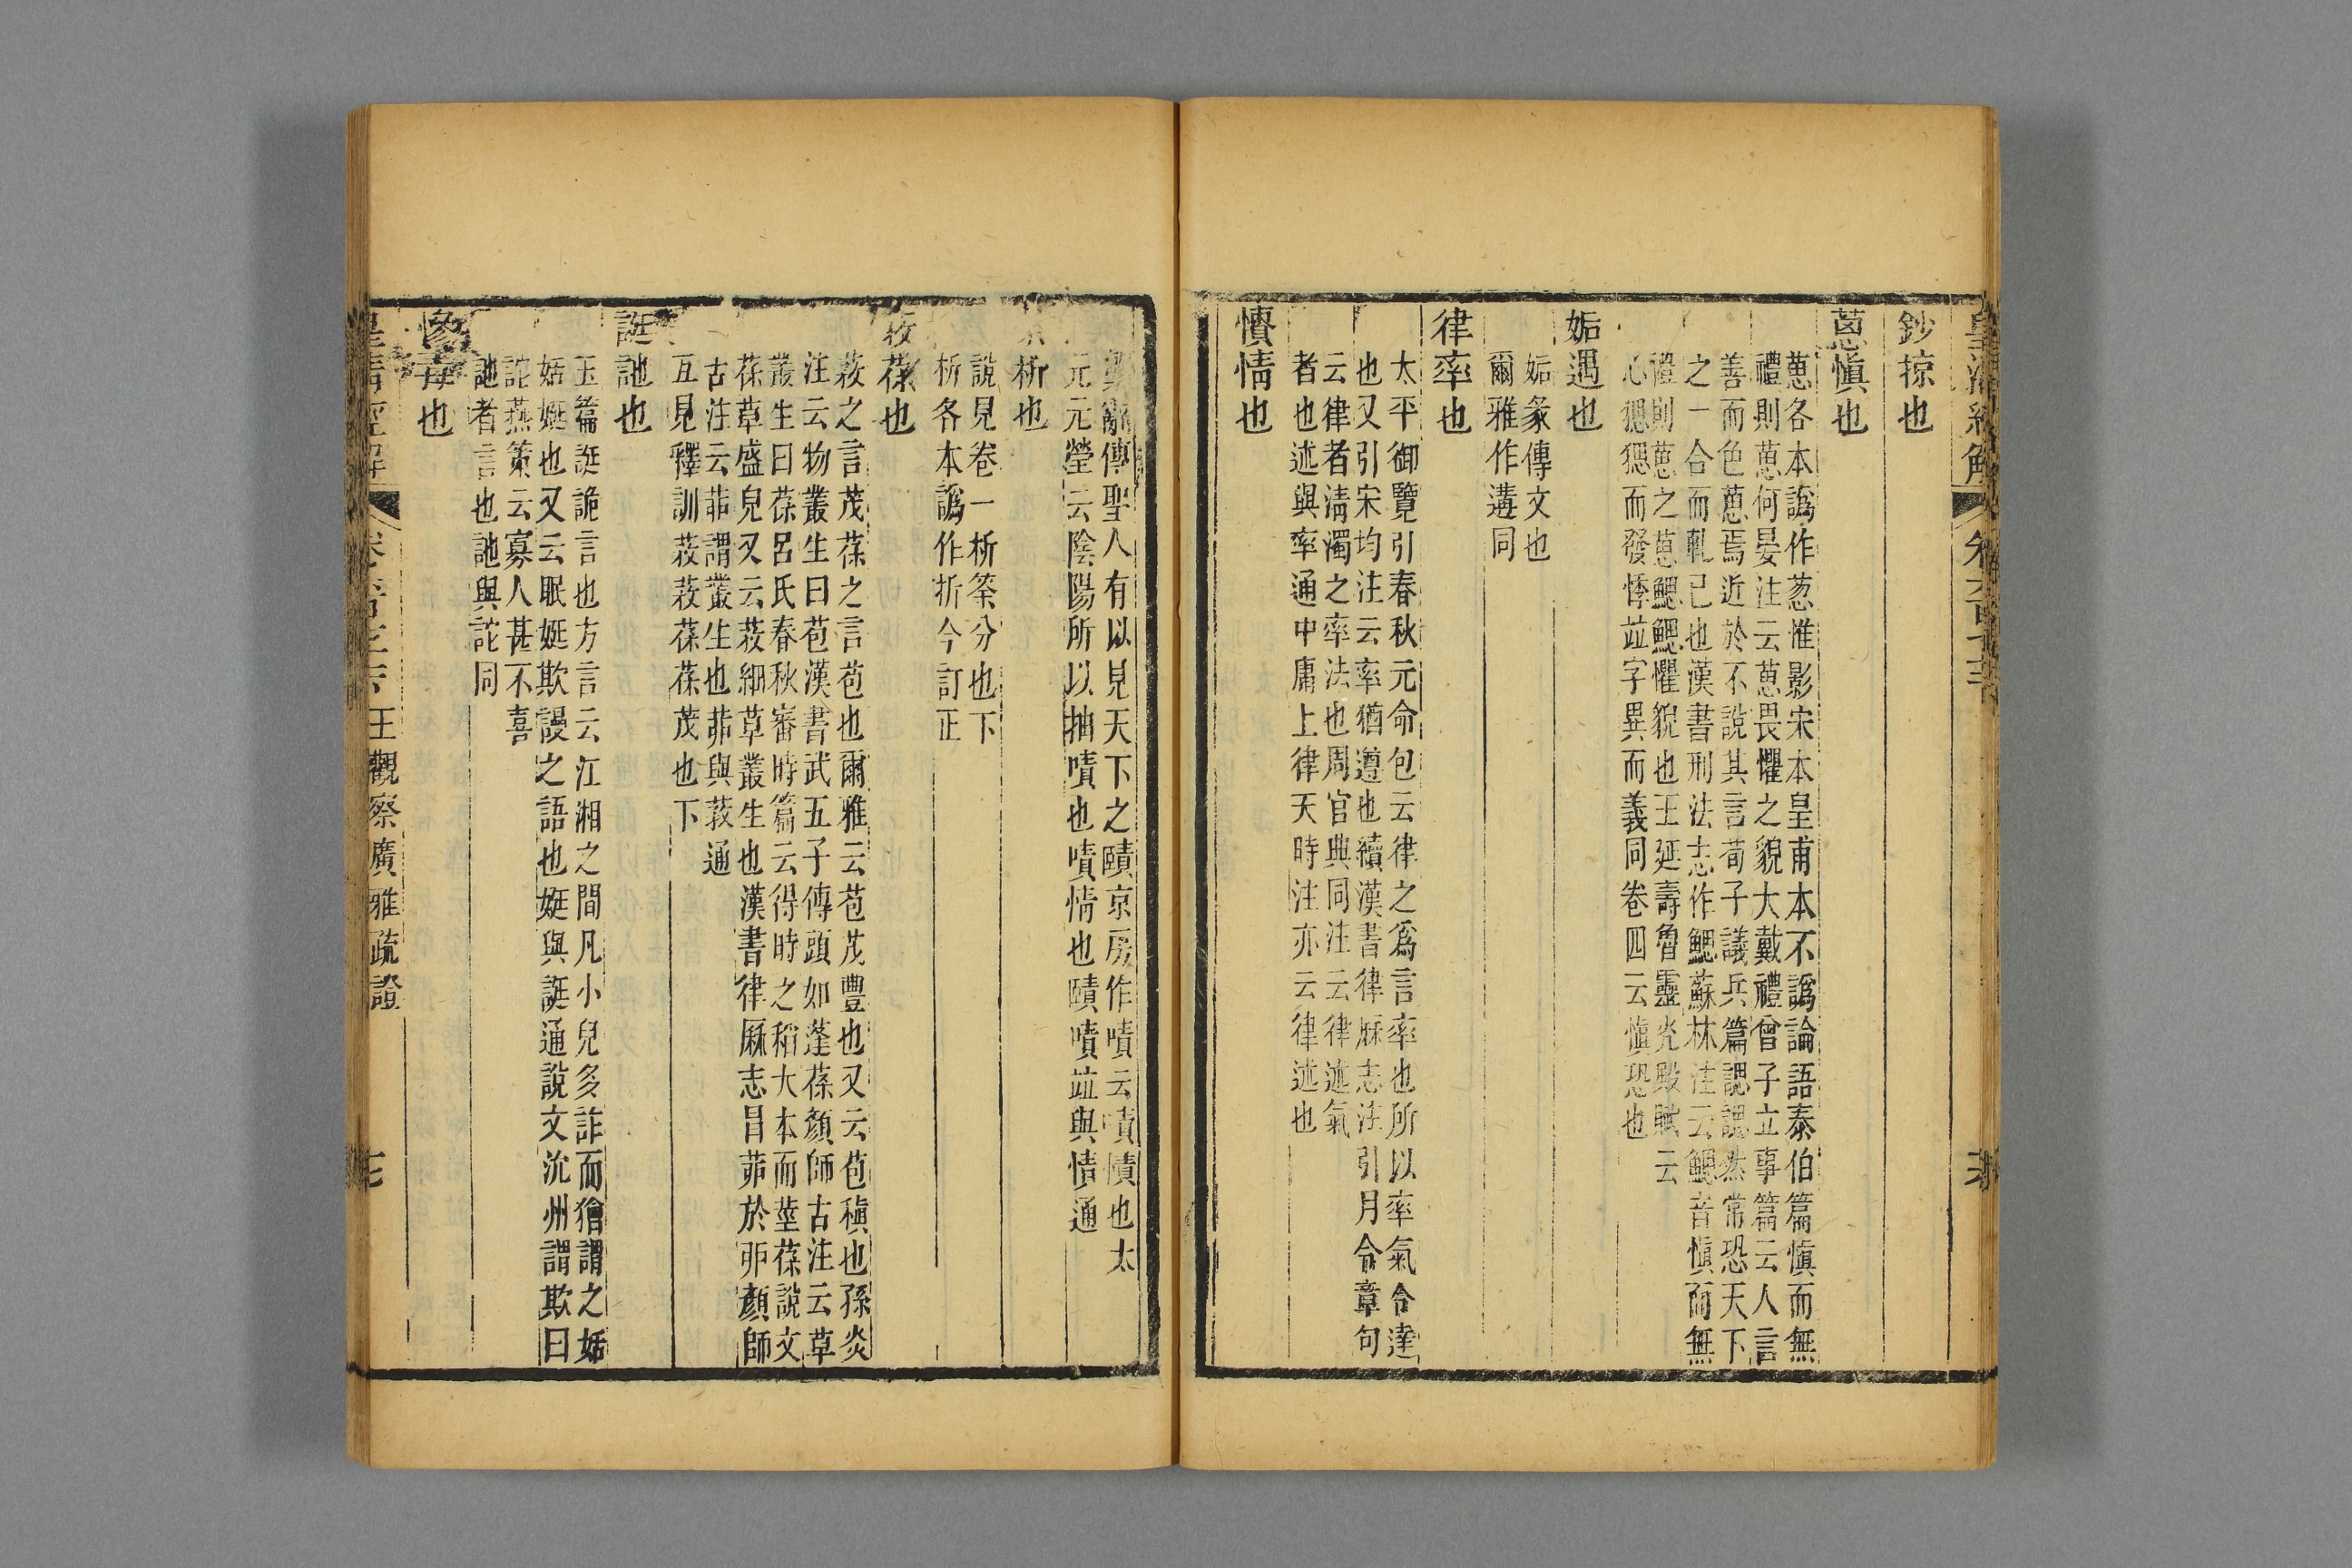 皇清經解
鈔掠也
葸愼也
葸各本譌作葱惟影宋本皇甫本不譌論語泰伯篇愼而無
禮則葸何晏注云葸畏懼之貌大戴禮曾子立事篇云人言
善而色葸焉近於不說其言荀子議兵篇諰諰然常恐天下
之一合而軋已也漢書刑法志作鰓蘇林注云鰓音愼而無
禮則葸之葸鰓鰓懼貌也王延壽魯靈光殿賦云
心𤟧𤟧而發悸竝字異而義同卷四云愼恐也
姤遇也
姤彖傳文也
爾雅作遘同
律率也
太平御覽引春秋元命包云律之爲言率也所以率氣令達
也又引宋均注云率猶遵也續漢書律厤志注引月令章句
云律者淸濁之率法也周官典同注云律述氣
者也述與率通中庸上律天時注亦云律述也
憤情也
繫辭傳聖人有以見天下之賾京房作嘖云嘖情也太
元元瑩云陰陽所以抽嘖也嘖情也賾嘖竝與憤通
析也
說見卷一析筡分也下
析各本譌作折今訂正
葆也
葆之言茂葆之言苞也爾雅云苞茂豐也又云苞稹也孫炎
注云物叢生曰苞漢書武五子傳頭如蓬葆顏師古注云草
叢生曰葆呂氏春秋審時篇云得時之稻大本而莖葆說文
葆草盛皃又云菽細草叢生也漢書律厤志冒茆於丣顏師
古注云茆謂叢生也茆與菽通
互見釋訓菽菽葆葆茂也下
誔訑也
玉篇誔詭言也方言云江湘之間凡小兒多詐而獪謂之姡
姡娗也又云眠娗欺謾之語也娗與誔通說文沇州謂欺曰
詑燕策云寡人甚不喜
訑者言也訑與詑同
也
皇清經解
王觀察廣雅疏證